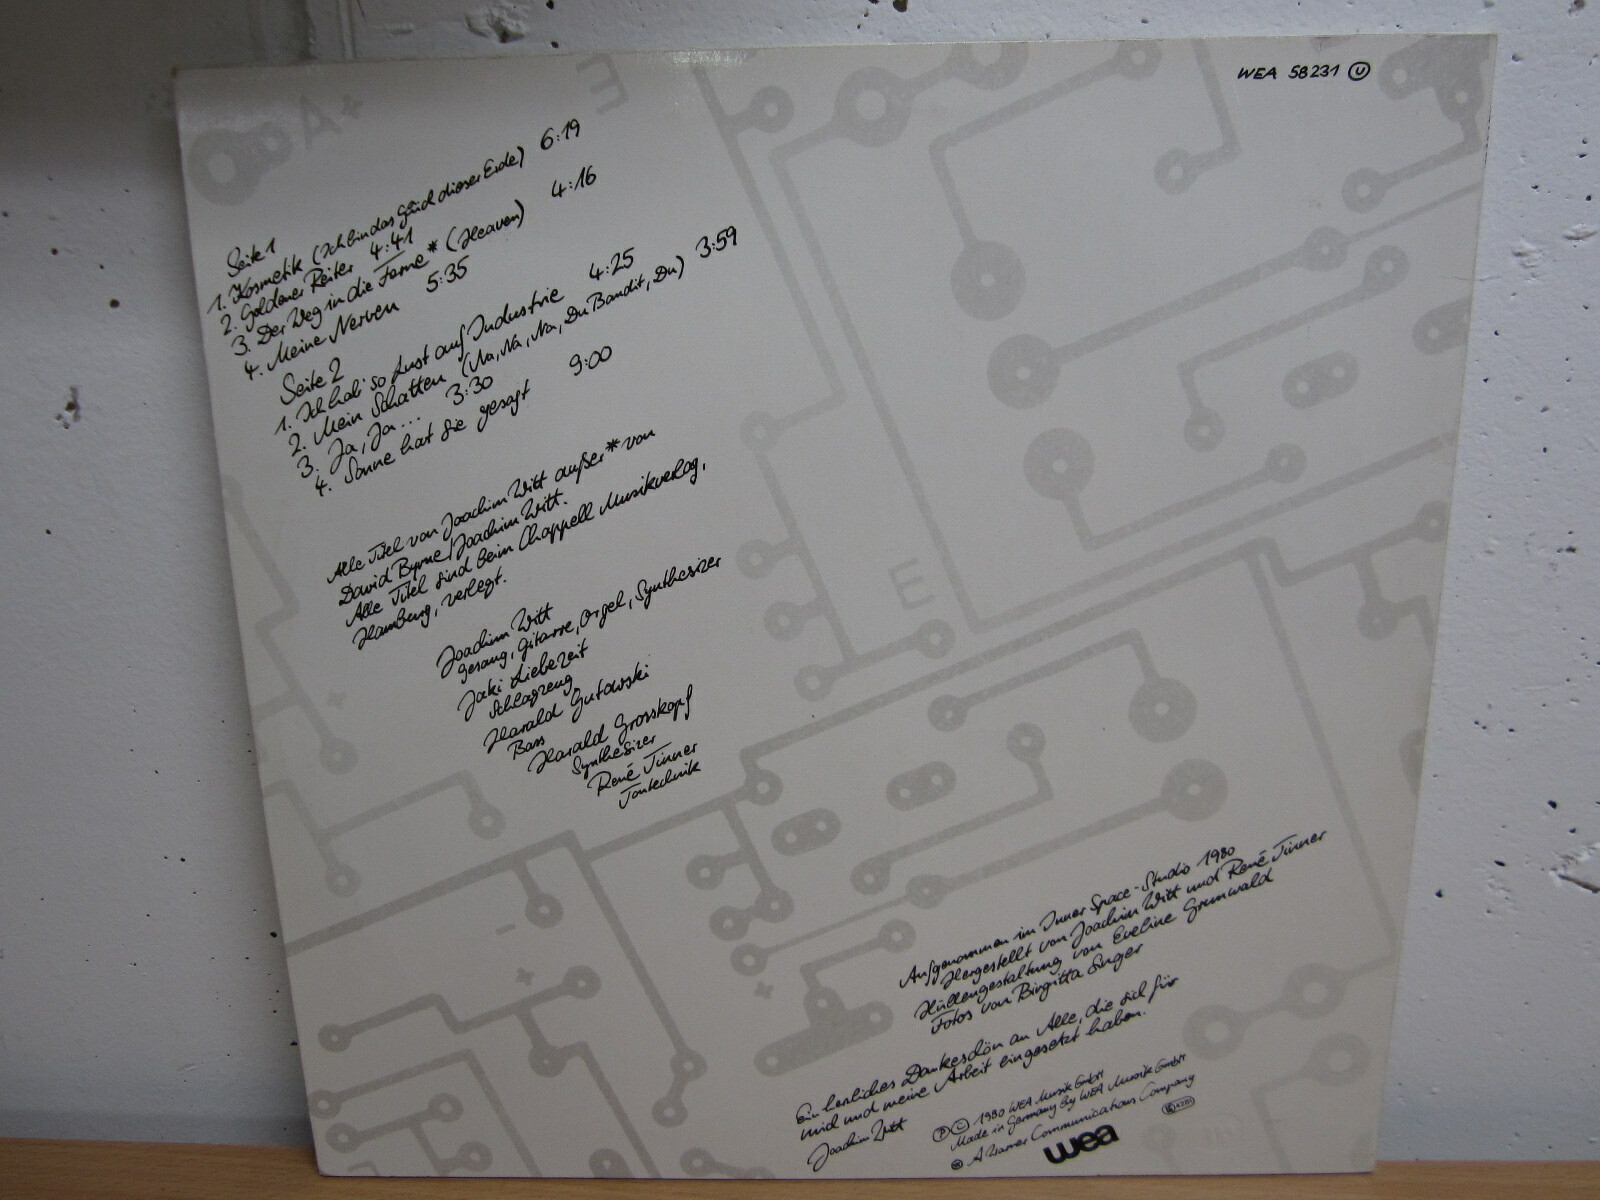 WEA 58231 U
Seite 1
1. Kosmetik (Ich bin das Glück dieser Erde) 6:19
2. Goldener Reiter 4:41
3. Der Weg in die Ferne * (Heaven) 4:16
4. Meine Nerven 5:35
Seite 2
1. Ich hab' so Lust auf Industrie 4:25
2. Mein Schatten (Na, Na, Na, Du Bandit, Du) 3:59
3. Ja, Ja... 3:30
4. Sonne hat sie gesagt 9:00
Alle Titel von Joachim Witt außer * von
David Byrne/Joachim Witt.
Alle Titel sind beim Chappell Musikverlag,
Hamburg, verlegt.
Joachim Witt
Gesang, Gitarre, Orgel, Synthesizer
Jaki Liebezeit
Schlagzeug
Harald Gutowski
Bass
Harald Grosskopf
Synthesizer
René Tinner
Tontechnik
Aufgenommen im Inner Space-Studio 1980
Hergestellt von Joachim Witt und René Tinner
Hüllengestaltung von Eveline Grunwald
Fotos von Birgitta Singer
Ein herzliches Dankeschön an Alle, die sich für
mich und meine Arbeit eingesetzt haben.
Joachim Witt
Ⓟ © 1980 WEA Musik GmbH
Made in Germany by WEA Musik GmbH
A Warner Communications Company
wea
A+
E
E